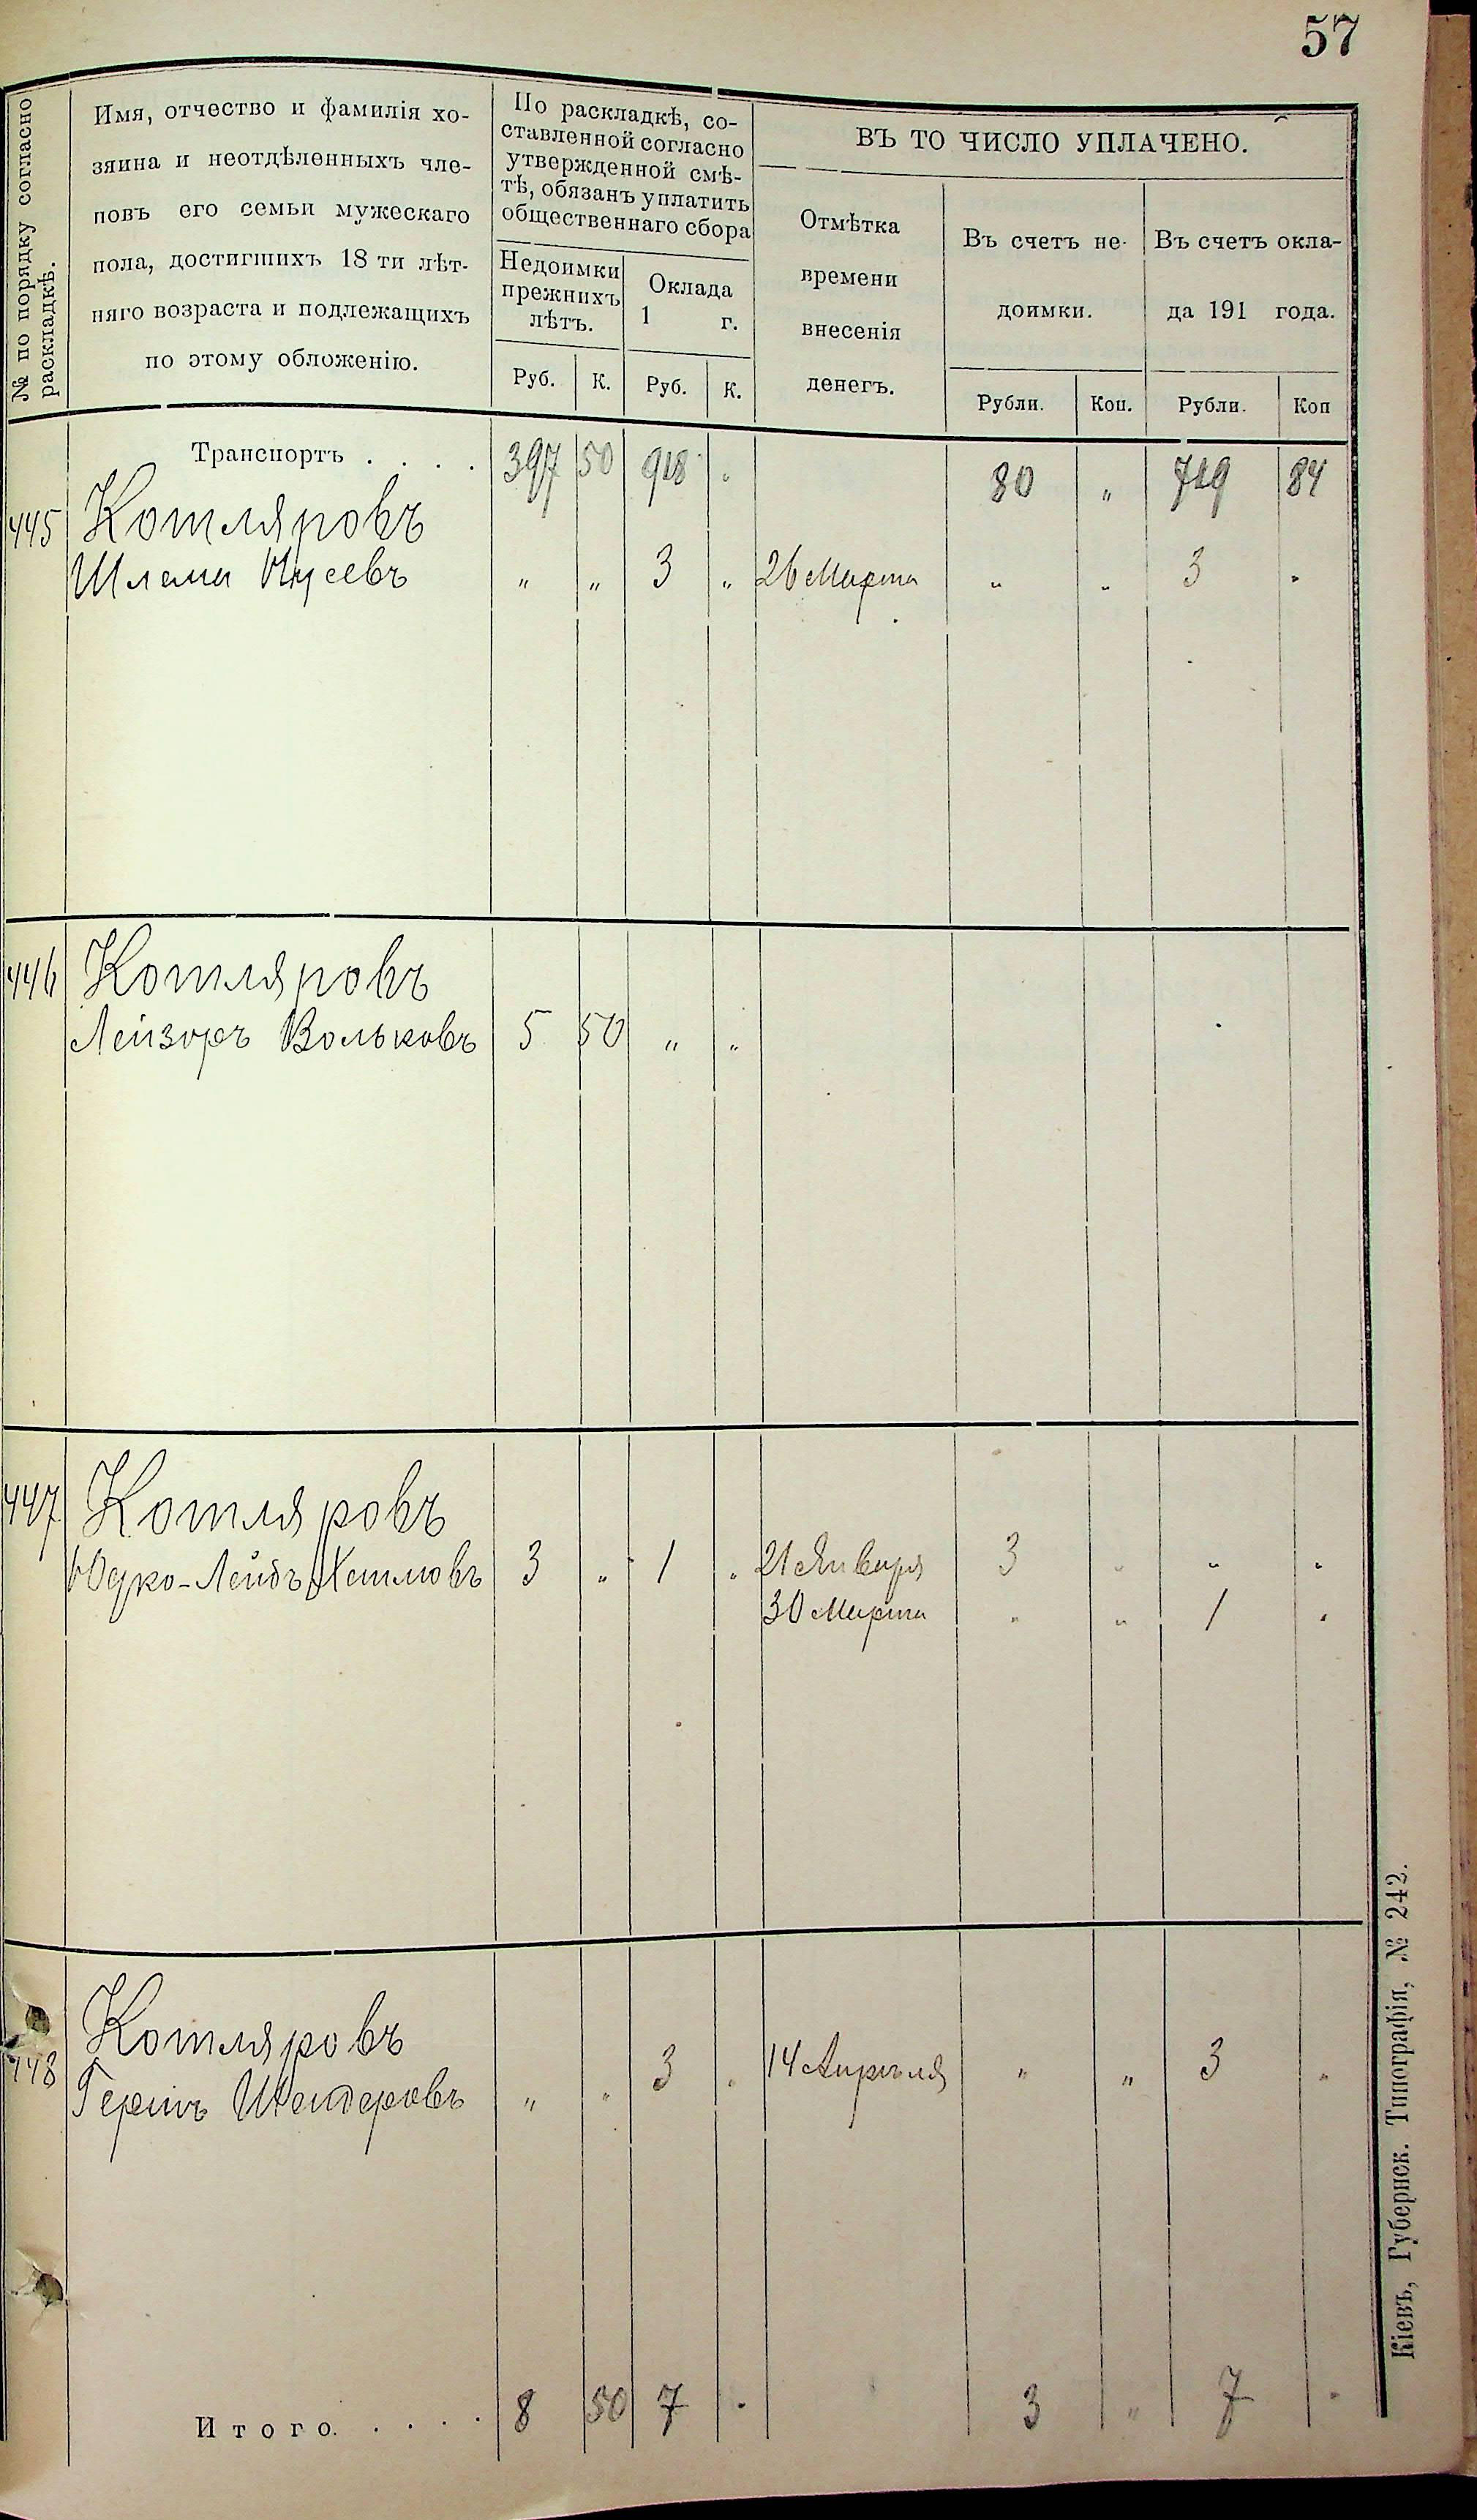 57
№ по порядку согласно раскладкѣ.
Имя, отчество и фамилія хо-
зяина и неотдѣленныхъ чле-
новъ его семьи мужескаго
пола, достигшихъ 18 ти лѣт-
няго возраста и подлежащихъ
по этому обложенію.
По раскладкѣ, со-
ставленной согласно
утвержденной смѣ-
тѣ, обязанъ уплатить
общественнаго сбора
Недоимки
прежнихъ
лѣтъ.
Оклада
1 г.
Руб. К. Руб. К.
ВЪ ТО ЧИСЛО УПЛАЧЕНО.
Отмѣтка
времени
внесенія
денегъ.
Въ счетъ не-
доимки.
Въ счетъ окла-
да 191 года.
Рубли. Коп. Рубли. Коп
Транспортъ . . . . 397 50 918 „ 80 „ 719 84
445 Котляровъ
Шлема Нусевъ „ „ 3 „ 26 Марта „ „ 3 „
446 Котляровъ
Лейзоръ Вольковъ 5 50 „ „
447 Котляровъ
Юдко-Лейбъ Хаимовъ 3 „ 1 „ 21 Января 3 „ „ „
30 Марта „ „ 1 „
448 Котляровъ
Гершъ Шендеровъ „ „ 3 „ 14 Апрѣля „ „ 3 „
Итого. . . . . 8 50 7 „ 3 „ 7 „
Кіевъ, Губернск. Типографія, № 242.